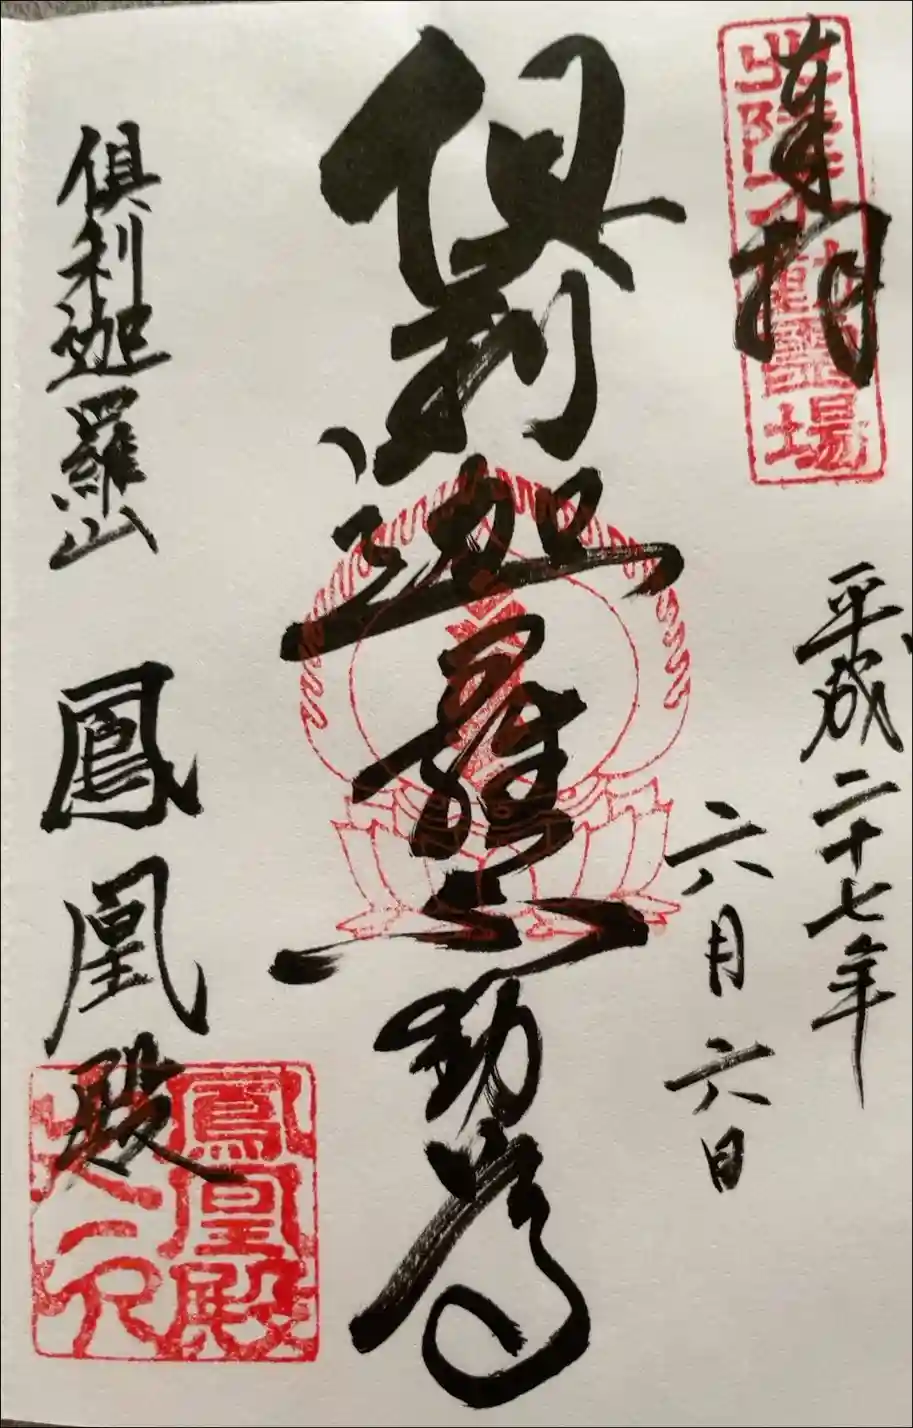 奉拝
北陸不動霊場
平成二十七年
六月六日
倶利迦羅不動尊
倶利迦羅山 鳳凰殿
鳳凰殿